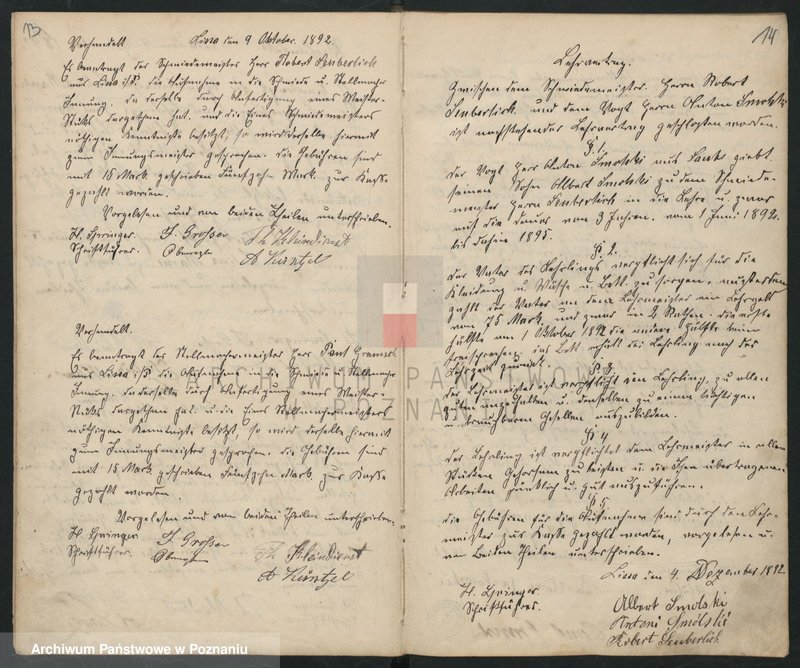 13
Verhandelt Lissa den 9 Oktober 1892.
Es beantragt der Schmiedemeister Herr Robert Seuberlich
aus Lissa i/P. die Aufnahme in die Schmiede u. Stellmacher
Innung. Da derselbe durch Anfertigung eines Meister-
Stücks dargethan hat, und die Eines Schmiedemeisters
nöthigen Kenntniße besitzt, so wird derselbe hiermit
zum Innungsmeister gesprochen. Die Gebühren sind
mit 15 Mark geschrieben Fünfzehn Mark zur Kasse
gezahlt worden.
Vorgelesen und von beiden Theilen unterschrieben.
H. Springer F. Grosser Th Kleindienst
Schriftführer. Obermstr A Küntzel
Verhandelt.
Es beantragt der Stellmachermeister Herr Paul
aus Lissa i/P. die Aufnahme in die Schmiede u. Stellmacher
Innung. Da derselbe durch Anfertigung eines Meister-
Stücks dargethan hat. u. die Eines Stellmachermeisters
nöthigen Kenntniße besitzt, so wird derselbe hiermit
zum Innungsmeister gesprochen. Die Gebühren sind
mit 15 Mark geschrieben Fünfzehn Mark zur Kasse
gezahlt worden.
Vorgelesen und von beiden Theilen unterschrieben.
H. Springer F. Grosser Th Kleindienst
Schriftführer Obermstr A Küntzel
14
Lehrvertrag.
Zwischen dem Schmiedemeister. Herrn Robert
Seuberlich. und dem Vogt Herrn Anton Smolski
ist nachstehender Lehrvertrag geschloßen worden.
§ 1.
Der Vogt Herr Anton Smolski aus giebt.
seinen Sohn Albert Smolski zu dem Schmiede-
meister Herrn Seuberlich in die Lehre u. zwar
auf die Dauer von 3 Jahren. vom 1 Juni 1892.
bis dahin 1895.
§ 2.
Der Vater des Lehrlings verpflicht sich für die
Kleidung u. Wäsche u. Bett. zu sorgen, außerdem
zahlt der Vater an den Lehrmeister ein Lehrgeld
von 75 Mark. und zwar in 2 Rathen. die erste
Hälfte am 1 Oktober 1892 die andere Hälfte beim
Freisprechen, das Bett erhält der Lehrling nach der
Lehrzeit zurück.
§ 3.
Der Lehrmeister ist verpflicht den Lehrling, zu allen
Guten anzuhalten u. denselben zu einem tüchtigen
u. brauchbaren Gesellen auszubilden.
§ 4
Der Lehrling ist verpflichtet dem Lehrmeister in allen
Stücken Gehorsam zu leisten u. die Ihm übertragenen
Arbeiten pünktlich u. gut auszuführen.
§ 5.
Die Gebühren für die Aufnahme sind durch den Lehr-
meister zur Kasse gezahlt worden, vorgelesen u.
von Beiden Theilen unterschrieben.
Lissa den 4. Dezember 1892
H. Springer
Schriftführer.
Albert Smolski
Antoni Smolski
Robert Seuberlich
ARCHIWUM PAŃSTWOWE
POZNAŃ
Archiwum Państwowe w Poznaniu